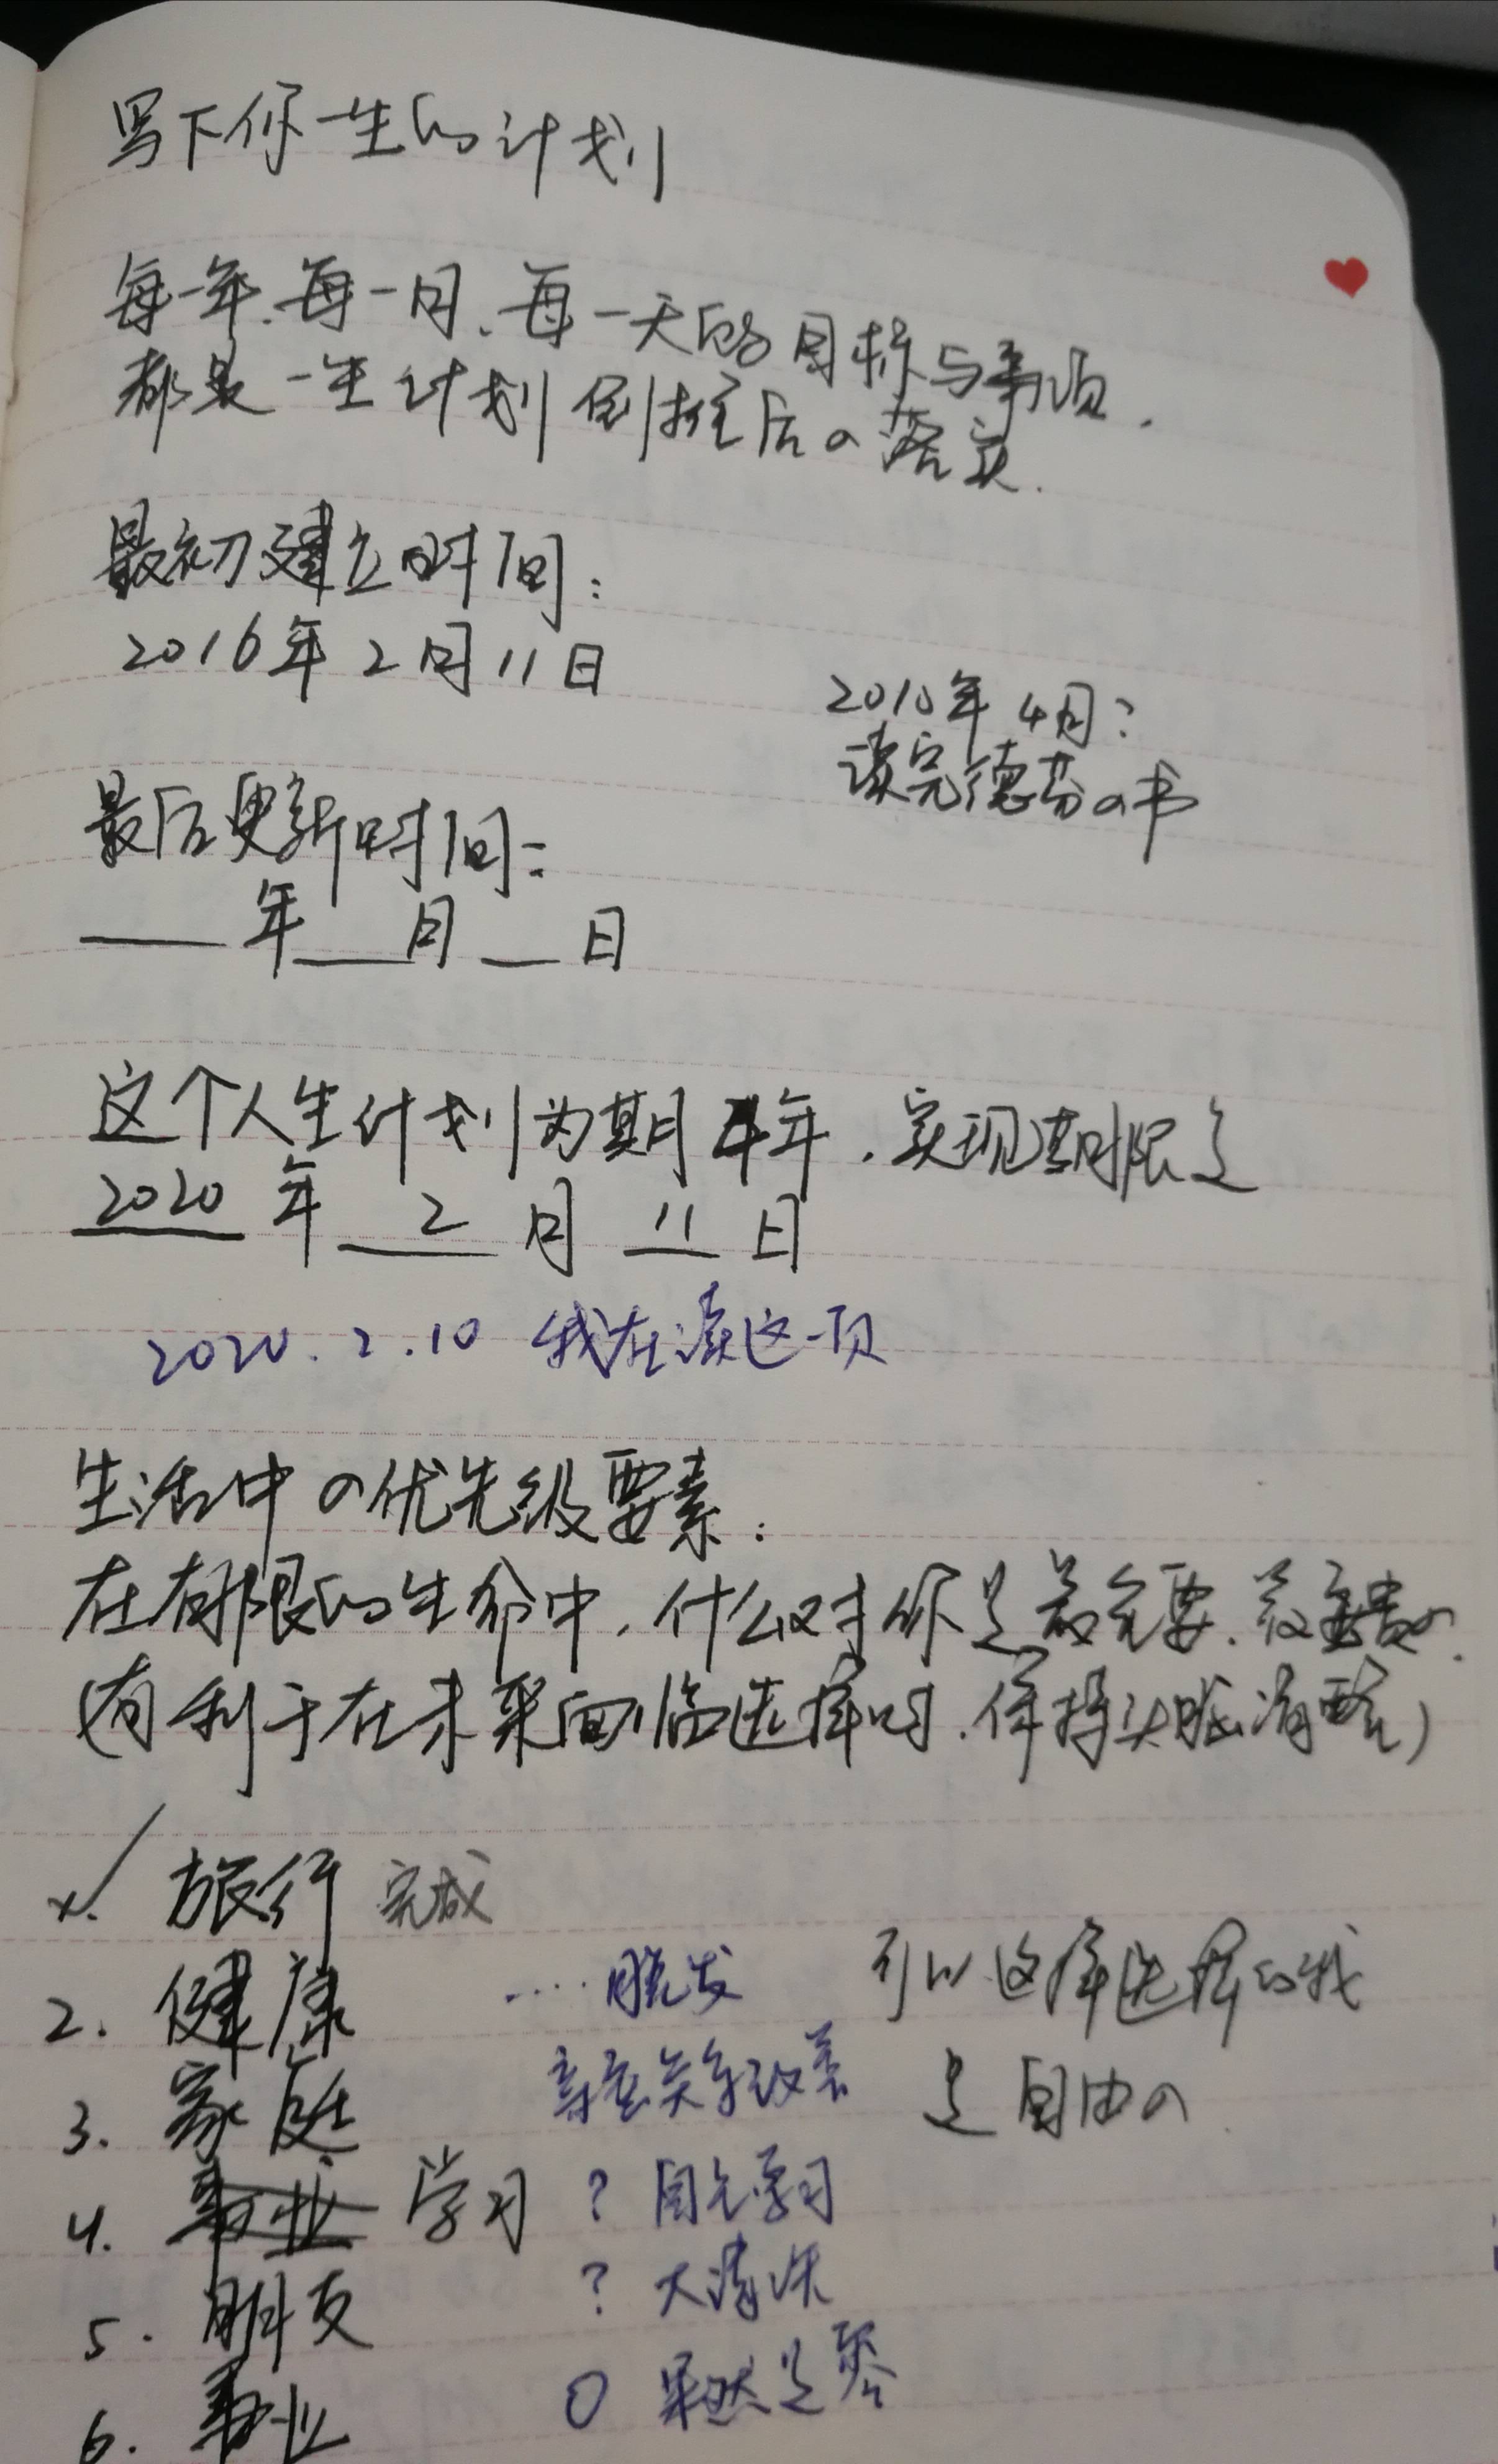 写下你一生的计划
每一年、每一月、每一天的目标与事项.
都是一生计划倒推后の落实.
最初建立时间:
2016年2月11日
2010年4月?
读完德芬の书
最后更新时间:
___年___月__日
这个人生计划为期4年.实现期限是
2020年2月11日
2020.2.10 我在读这一页
生活中の优先级要素:
在有限的生命中,什么对你是最重要、最宝贵の.
(有利于在未来面临选择时.保持头脑清醒)
✓ 旅行 完成
2. 健康 ....脱发
可以这样选择的我
是自由の
3. 家庭 亲密关系改善
4. 事业 学习 ? 自己学习
5. 朋友 ? 大清洗
6. 事业 0 果然是零